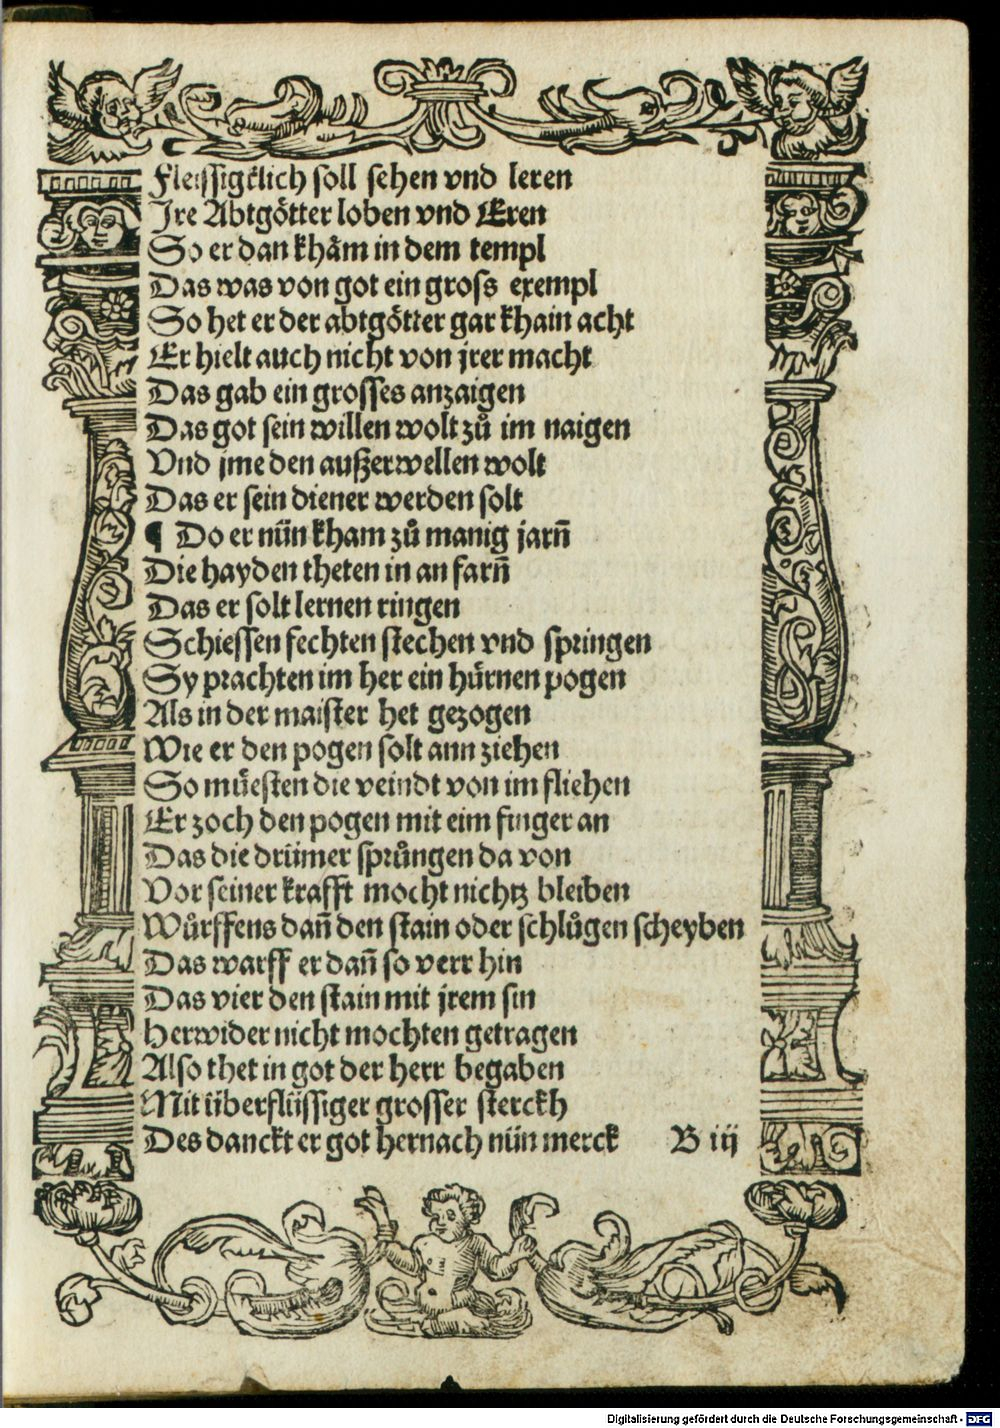 Fleissigklich soll sehen vnd leren
Jre Abtgötter loben vnd Eren
So er dan khäm in dem templ
Das was von got ein gross exempl
So het er der abtgötter gar khain acht
Er hielt auch nicht von jrer macht
Das gab ein grosses anzaigen
Das got sein willen wolt zů im naigen
Vnd jme den außerwellen wolt
Das er sein diener werden solt
¶ Do er nün kham zů manig jarn̄
Die hayden theten in an farn̄
Das er solt lernen ringen
Schiessen fechten stechen vnd springen
Sy prachten im her ein hürnen pogen
Als in der maister het gezogen
Wie er den pogen solt ann ziehen
So müesten die veindt von im fliehen
Er zoch den pogen mit eim finger an
Das die drümer sprůngen da von
Vor seiner krafft mocht nichtz bleiben
Wůrffens dan̄ den stain oder schlůgen scheyben
Das warff er dan̄ so verr hin
Das vier den stain mit jrem sin
Herwider nicht mochten getragen
Also thet in got der herr begaben
Mit überflüssiger grosser sterckh
Des danckt er got hernach nün merck B iij
Digitalisierung gefördert durch die Deutsche Forschungsgemeinschaft - DFG